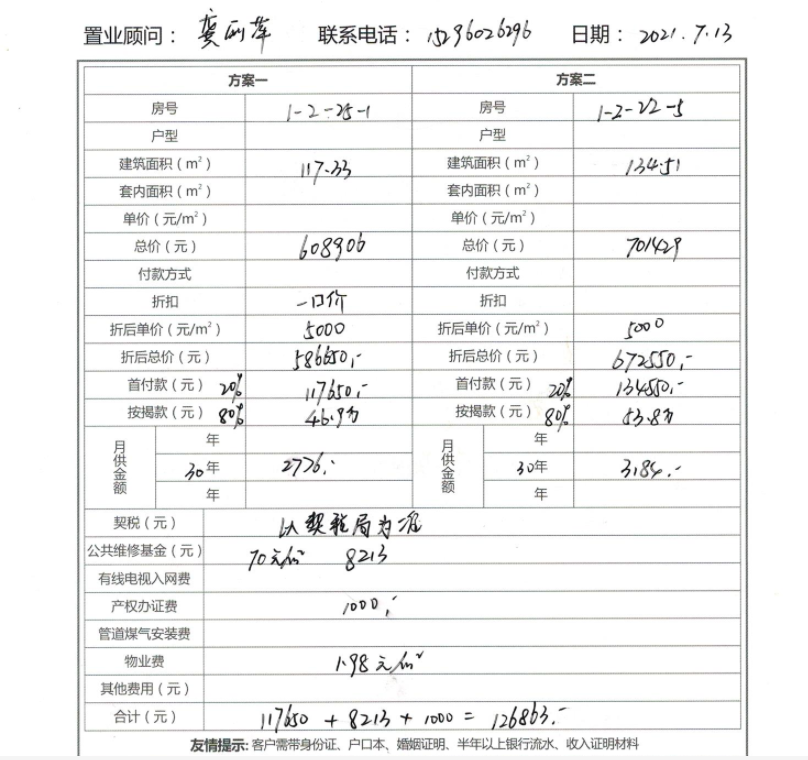 置业顾问： 龚丽萍 联系电话： 15296026296 日期： 2021.7.13
方案一 方案二
房号 1-2-25-1 房号 1-2-22-5
户型 户型
建筑面积（m²） 117.33 建筑面积（m²） 134.51
套内面积（m²） 套内面积（m²）
单价（元/m²） 单价（元/m²）
总价（元） 608906 总价（元） 701429
付款方式 付款方式
折扣 一口价 折扣
折后单价（元/m²） 5000 折后单价（元/m²） 5000
折后总价（元） 586650,- 折后总价（元） 672550,-
首付款（元） 20% 117650,- 首付款（元） 20% 134550,-
按揭款（元） 80% 46.9万 按揭款（元） 80% 53.8万
月供金额 年 月供金额 年
30年 2776,- 30年 3184,-
年 年
契税（元） 以契税局为准
公共维修基金（元） 70元/m² 8213
有线电视入网费
产权办证费 1000,-
管道煤气安装费
物业费 1.98元/m²
其他费用（元）
合计（元） 117650 + 8213 + 1000 = 126863,-
友情提示: 客户需带身份证、户口本、婚姻证明、半年以上银行流水、收入证明材料